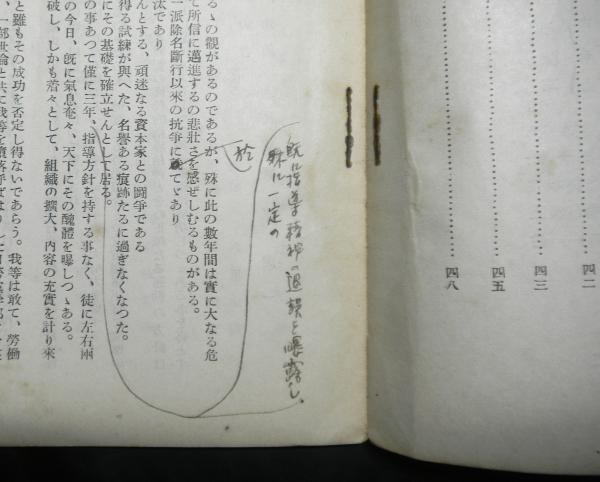 四二
四三
四五
四八
既に指導精神の退損を曝露し、
殊に一定の
於
るゝの觀があるのであるが、殊に此の數年間は實に大なる危
て所信に邁進するの悲壯さを感ぜしむるものがある。
一派除名斷行以來の抗爭に てゞあり
汰であり
んとする、頑迷なる資本家との鬪爭である
得る試練が與へた、名譽ある痕跡たるに過ぎなくなつた。
にその基礎を確立せんとして居る。
の事あつて僅に三年、指導方針を持する事なく、徒に左右兩
の今日、既に氣息奄々、天下にその醜體を曝しつゝある。
破し、しかも着々として、組織の擴大、内容の充實を計り來
と雖もその成功を否定し得ないであらう。我等は敢て、勞働
、一部世論と共に我等を